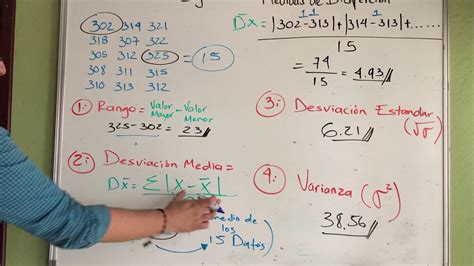 Medidas de Dispersión
302 314 321
307
305 312 325 = 15
308 311 315
312
11 1
Dx̄ = |302-313|+|314-313|+
15
= 74
15
= 4.93
1: Rango = Valor Mayor - Valor Menor
325-302 = 23
2: Desviación Media =
Dx̄ = Σ|x-x̄|
de
los
15 Datos
3: Desviación Estandar
6.21
4: Varianza (σ²)
38.56